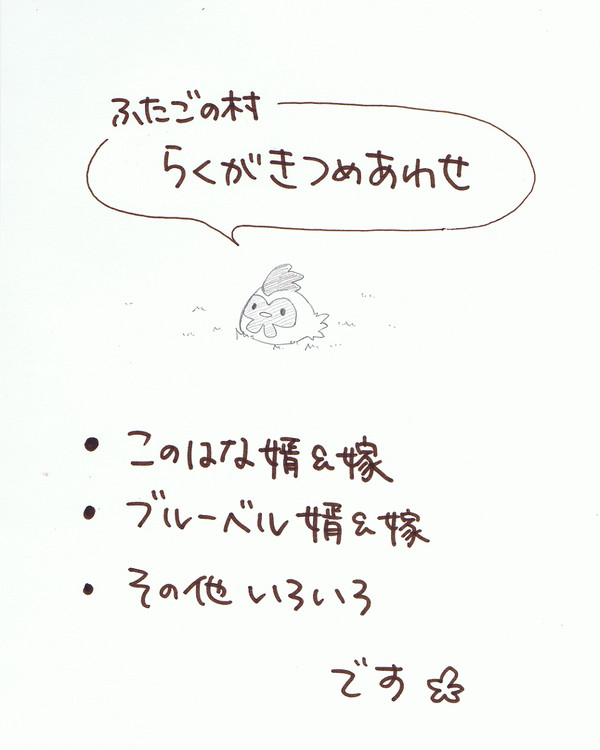 ふたごの村
らくがきつめあわせ
• このはな婿&嫁
• ブルーベル婿&嫁
• その他いろいろ
です